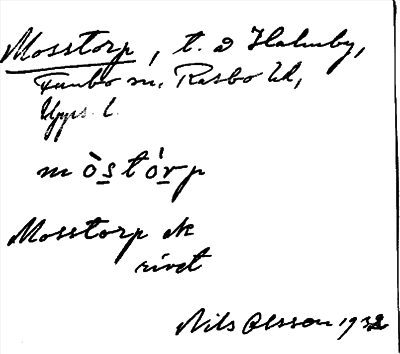 Mosstorp, t. a Halmby,
Funbo sn, Rasbo hd,
Upps. l.
mòstórp
Mosstorp nk
rivet
Nils Olsson 1932